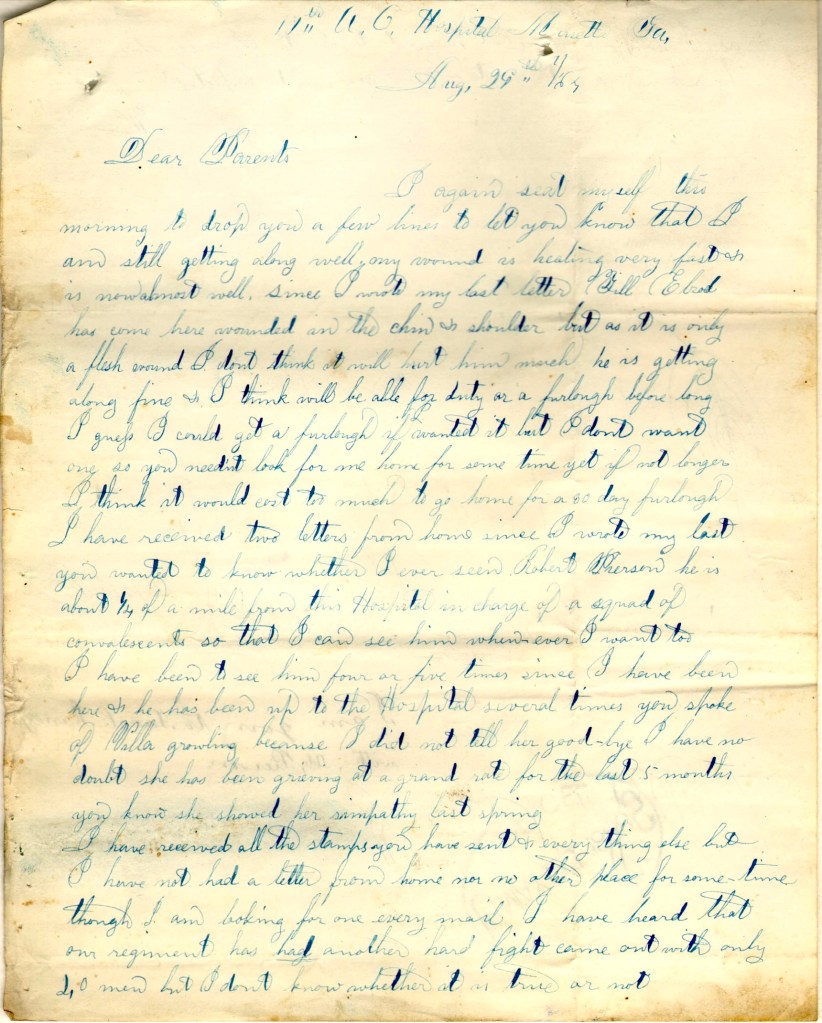 17th A. C. Hospital Marietta Ga,
Aug, 24th /64
Dear Parents
I again seat myself this
morning to drop you a few lines to let you know that I
am still getting along well, my wound is healing very fast &
is now almost well. since I wrote my last letter Bill Elrod
has come here wounded in the chin & shoulder but as it is only
a flesh wound I dont think it will hurt him much he is getting
along fine & I think will be able for duty or a furlough before long
I guess I could get a furlough if I wanted it but I dont want
one so you needn't look for me home for some time yet if not longer
I think it would cost too much to go home for a 30 day furlough
I have received two letters from home since I wrote my last
you wanted to know whether I ever seen Robert he is
about 1/4 of a mile from this Hospital in charge of a squad of
convalescents so that I can see him when-ever I want too
I have been to see him four or five times since I have been
here & he has been up to the Hospital several times you spoke
of growling because I did not tell her good-bye I have no
doubt she has been grieving at a grand rate for the last 5 months
you know she showed her simpathy last spring
I have received all the stamps you have sent & every thing else but
I have not had a letter from home nor no other place for some-time
though I am looking for one every mail I have heard that
our regiment has had another hard fight came out with only
40 men but I dont know whether it is true or not